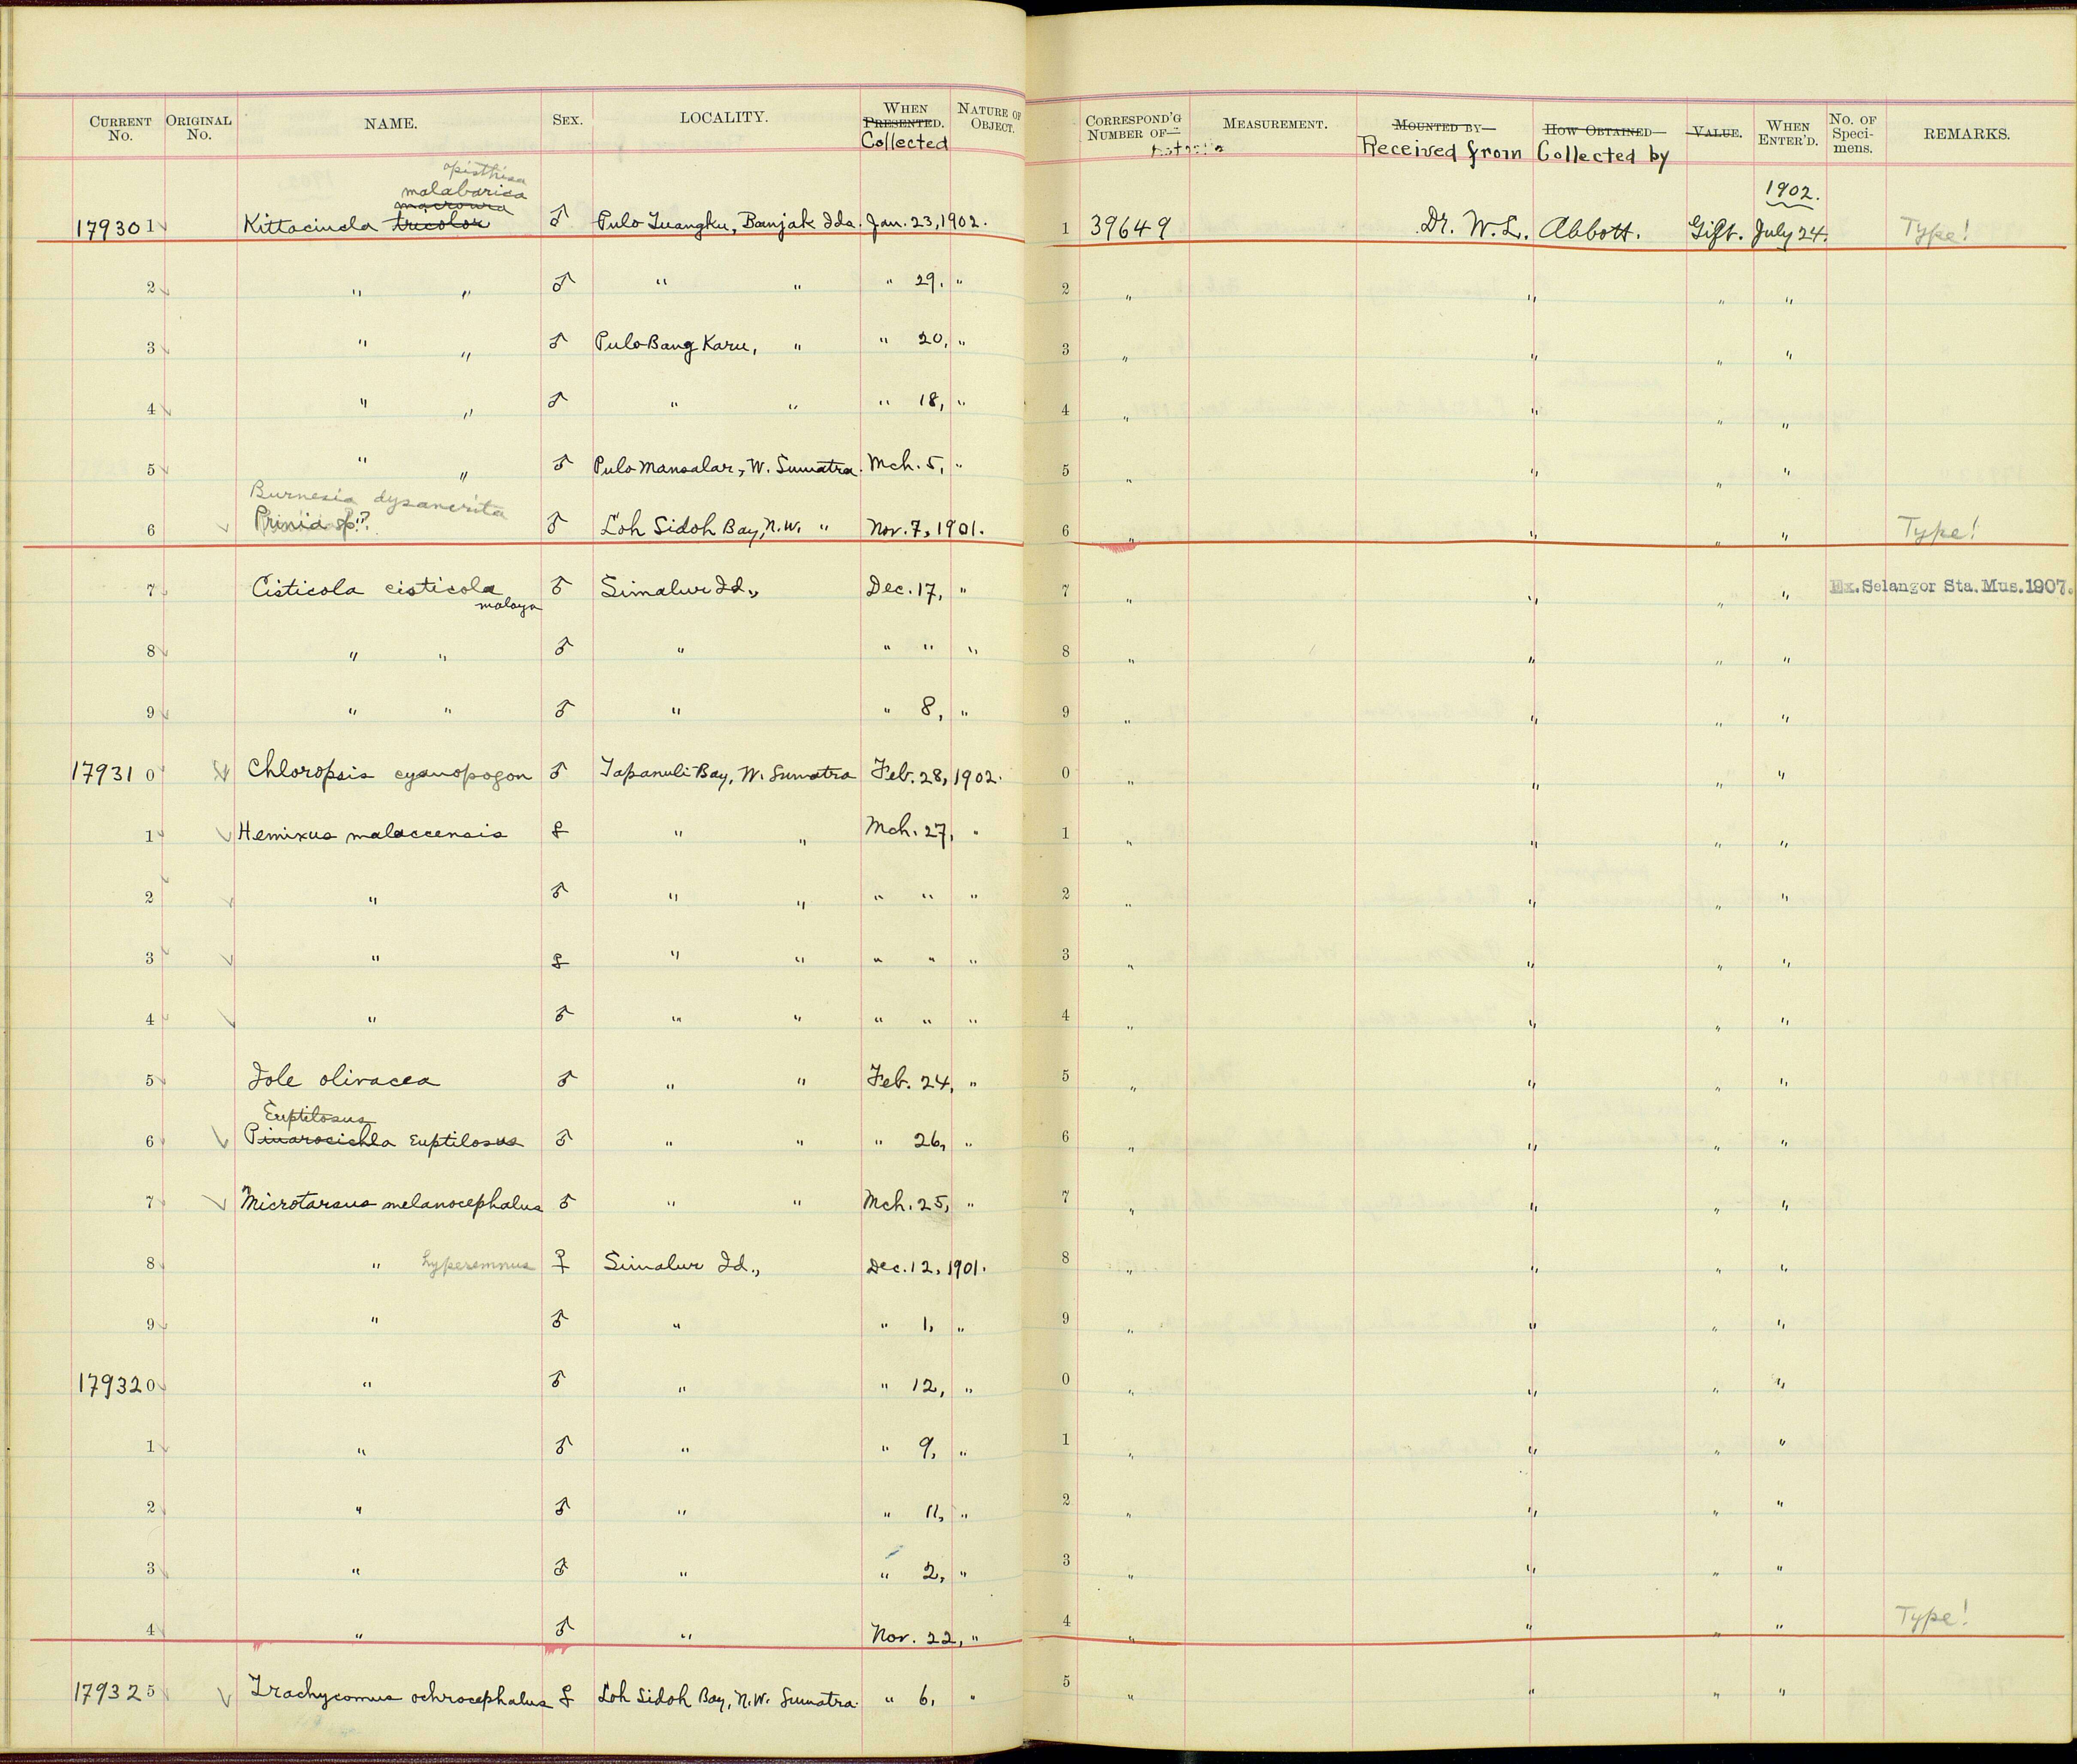 CURRENT No. ORIGINAL No. NAME. SEX. LOCALITY. WHEN PRESENTED. Collected NATURE OF OBJECT. CORRESPOND'G NUMBER OF MEASUREMENT. MOUNTED BY Received from HOW OBTAINED Collected by VALUE. WHEN ENTER'D. No. OF Specimens. REMARKS.
opisthisa
malabarica
macroura 1902.
179301 Kittacincla tricolor ♂ Pulo Tuangku, Banjak Ids. Jan. 23, 1902. 1 39649 Dr. W. L. Abbott. Gift. July 24. Type!
2 " " ♂ " " " 29, " 2 " " " "
3 " " ♂ Pulo Bang Karu, " " 20, " 3 " " " "
4 " " ♂ " " " 18, " 4 " " " "
5 " " ♂ Pulo Mansalar, W. Sumatra. Mch. 5, " 5 " " " "
Burnesia dysancrita
6 Prinia sp.? ♂ Loh Sidoh Bay, N.W. " Nov. 7, 1901. 6 " " " " Type!
7 Cisticola cisticola ♂ Simalur Id., Dec. 17, " 7 " " " " Ex. Selangor Sta. Mus. 1907.
malaya
8 " " ♂ " " " " 8 " " " "
9 " " ♂ " " 8, " 9 " " " "
179310 Chloropsis cyanopogon ♂ Tapanuli Bay, W. Sumatra Feb. 28, 1902. 0 " " " "
1 Hemixus malaccensis ♀ " " Mch. 27, " 1 " " " "
2 " ♂ " " " " " 2 " " " "
3 " ♀ " " " " " 3 " " " "
4 " ♂ " " " " " 4 " " " "
5 Iole olivacea ♂ " " Feb. 24, " 5 " " " "
Euptilosus
6 Pinarocichla Euptilosus ♂ " " " 26, " 6 " " " "
7 Microtarsus melanocephalus ♂ " " Mch. 25, " 7 " " " "
8 " hyperemnus ♀ Simalur Id., Dec. 12, 1901. 8 " " " "
9 " ♂ " " 1, " 9 " " " "
179320 " ♂ " " 12, " 0 " " " "
1 " ♂ " " 9, " 1 " " " "
2 " ♂ " " 11, " 2 " " " "
3 " ♂ " " 2, " 3 " " " "
4 " ♂ " Nov. 22, " 4 " " " " Type!
179325 Trachycomus ochrocephalus ♀ Loh Sidoh Bay, N.W. Sumatra. " 6, " 5 " " " "